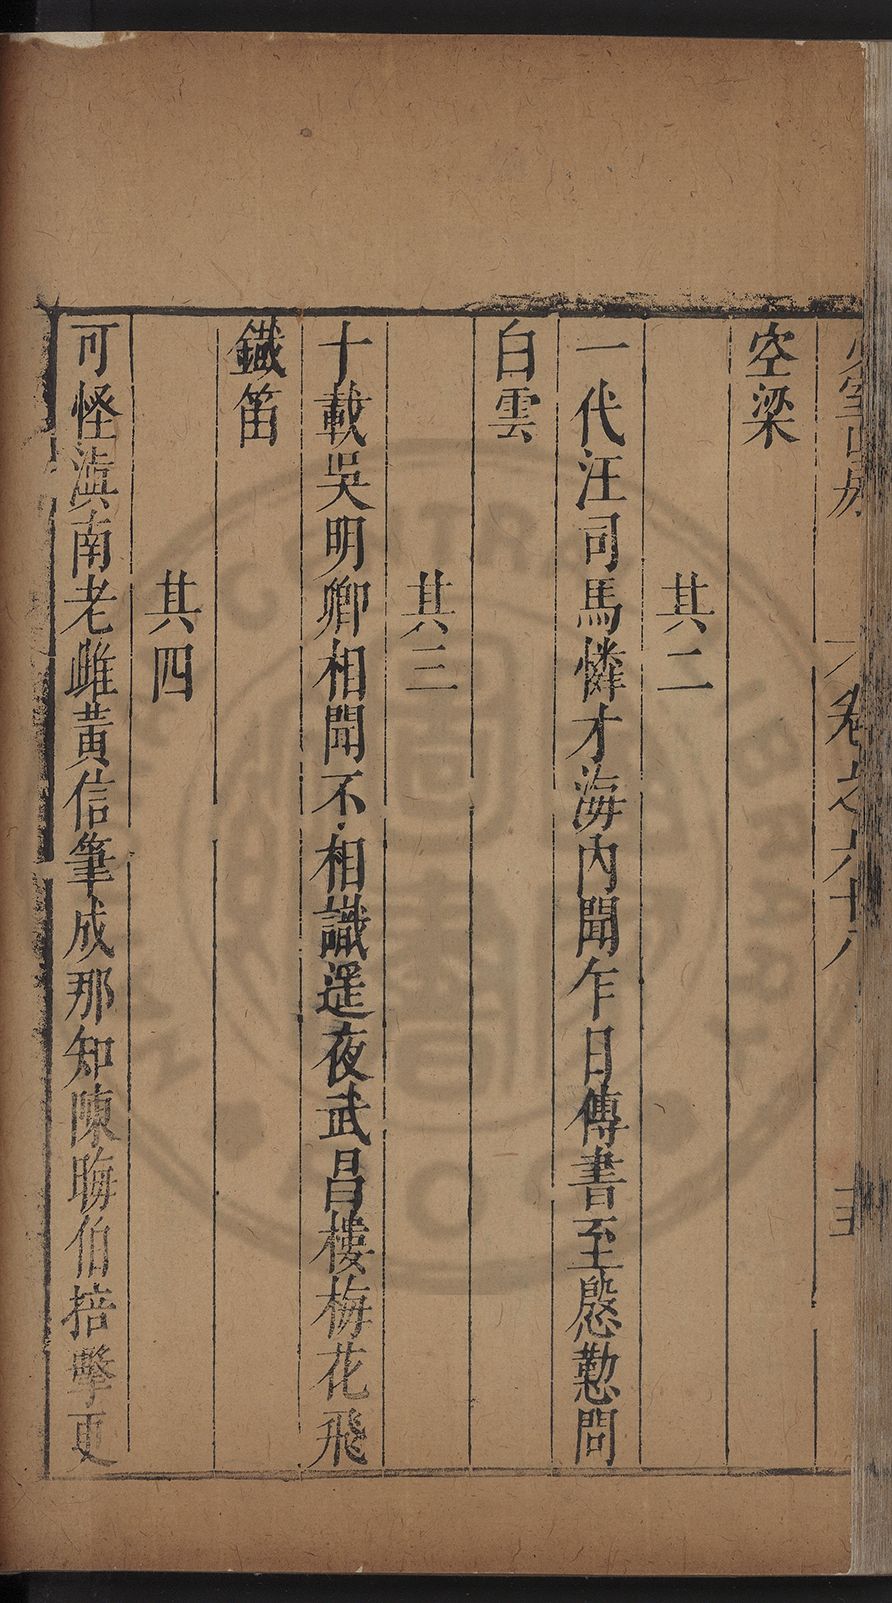 卷之六十八
空梁
其二
一代汪司馬憐才海內聞乍日傳書至慇懃問
白雲
其三
十載吳明卿相聞不相識遥夜武昌樓梅花飛
鐵笛
其四
可怪滇南老雌黃信筆成那知陳晦伯掊擊更